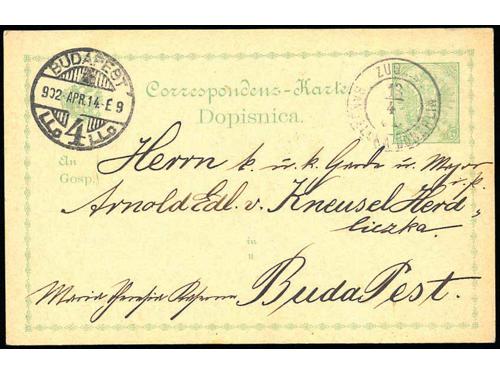 BUDAPEST
902-APR.14-E 9
4
Correspondenz-Karte
Dopisnica.
ZUB
13
4
An
Gosp.
Herrn k. u. k. Garde u. Major
Arnold Edl. v. Kneusel Herd
liczka.
in
u
Maria Theresia Kaserne
BudaPest.
5